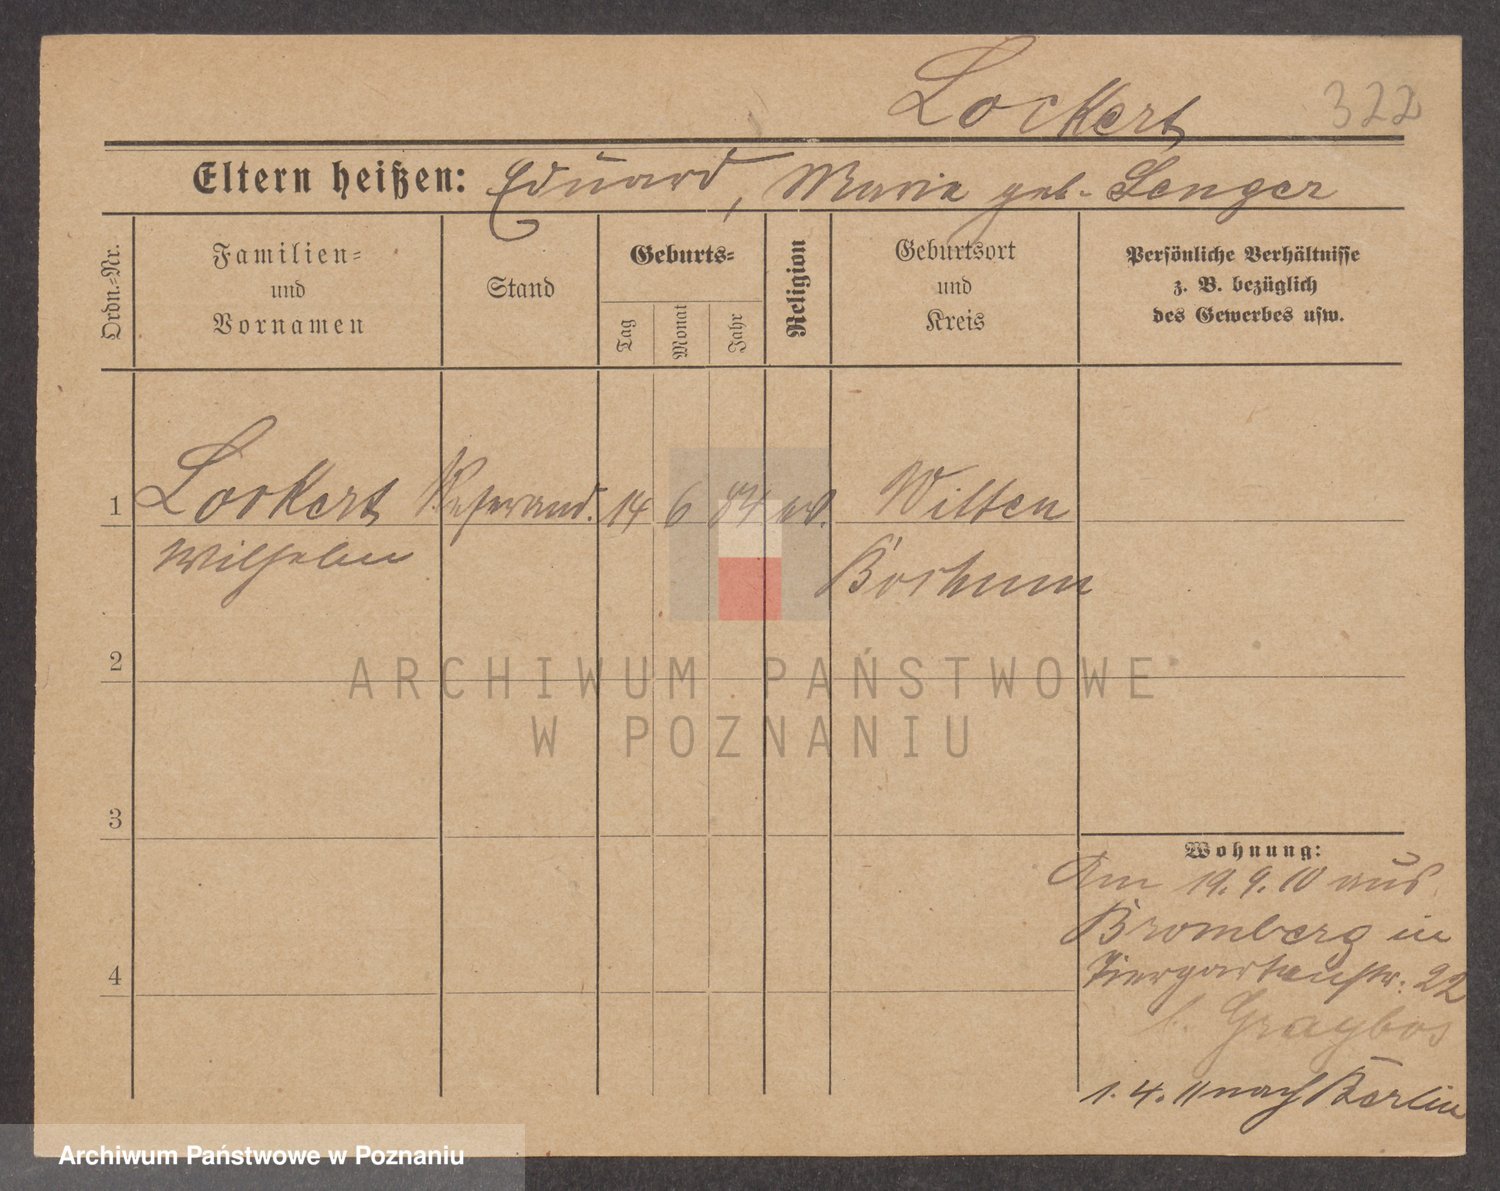 Lockert 322
Eltern heißen: Eduard, Marie geb. Senger
Ordn.-Nr.
Familien-
und
Vornamen
Stand
Geburts-
Tag
Monat
Jahr
Religion
Geburtsort
und
Kreis
Persönliche Verhältnisse
z. B. bezüglich
des Gewerbes usw.
1 Lockert Referend. 14 6 84 ev. Witten
Wilhelm Bochum
2
3
4
Wohnung:
Am 19.9.10 aus
Bromberg in
Tiergartenstr. 22
b. Graybos
1.4.11 nach Berlin
ARCHIWUM PAŃSTWOWE
W POZNANIU
Archiwum Państwowe w Poznaniu